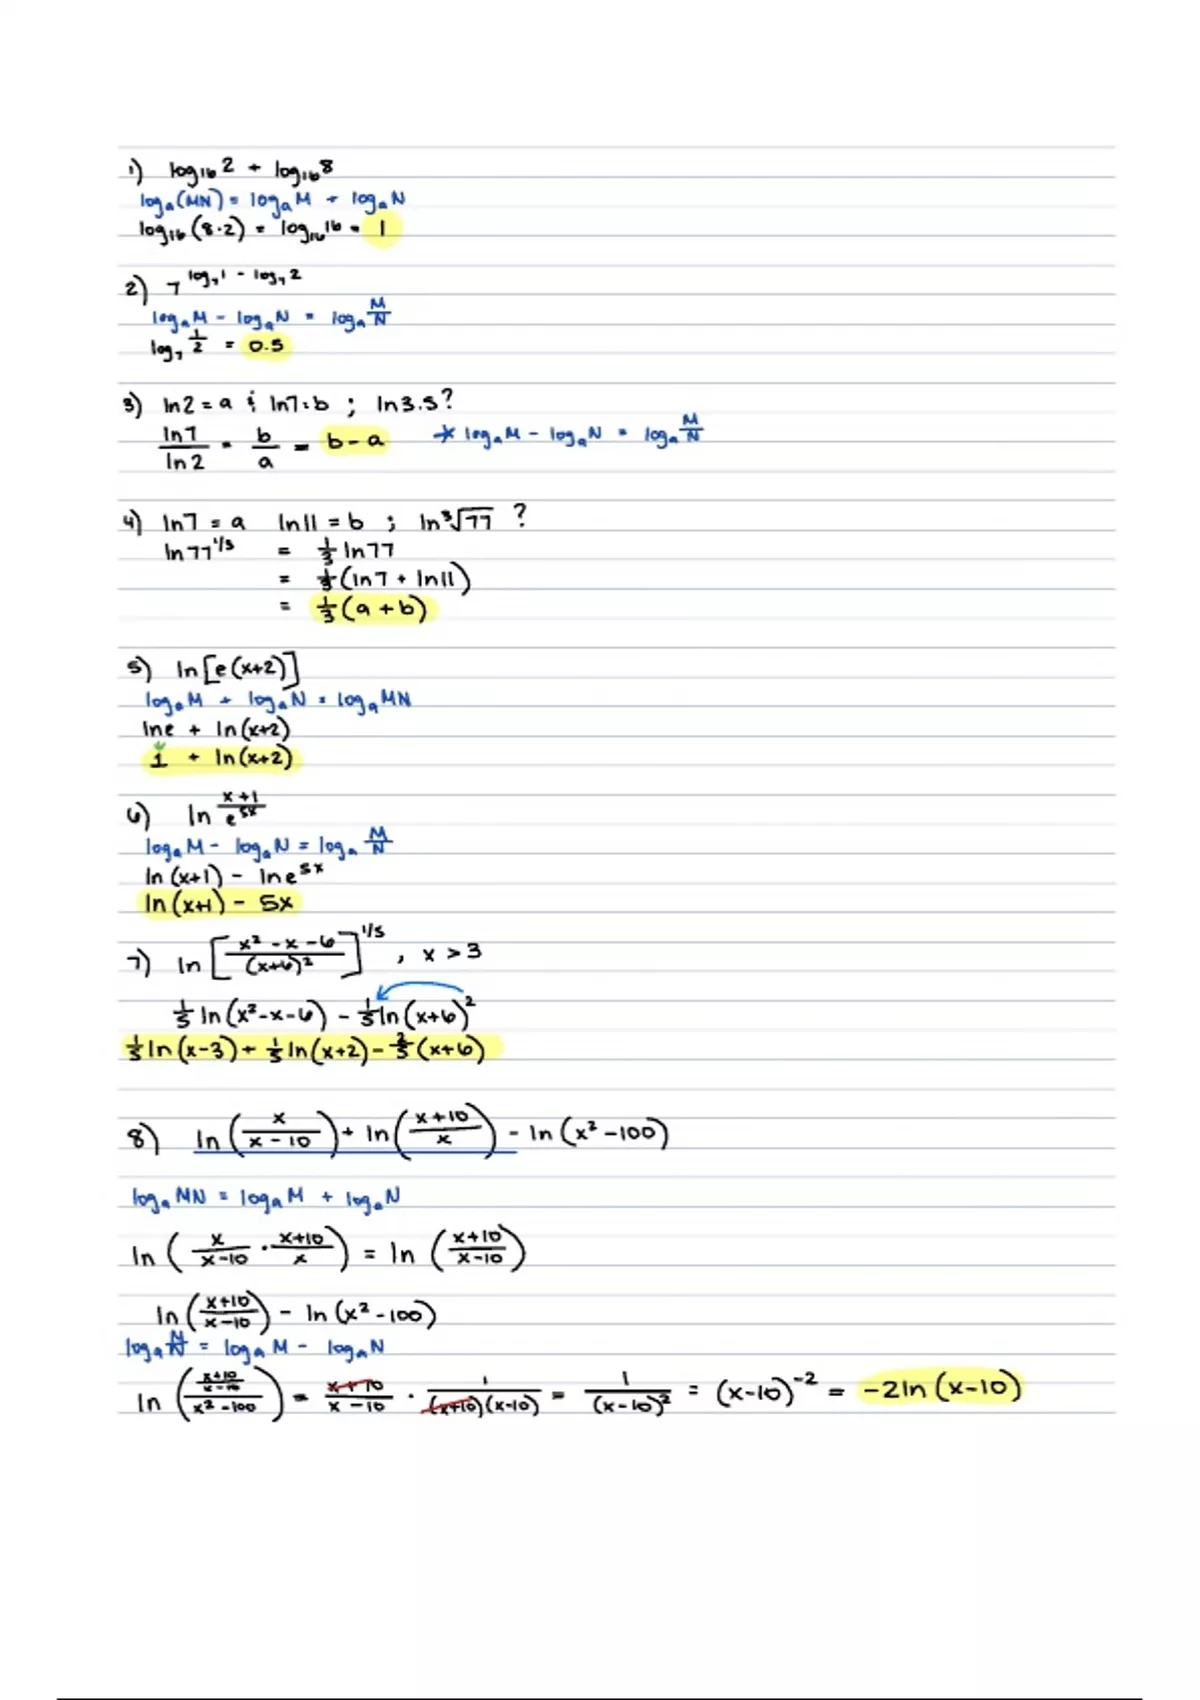 1) log₁₆2 + log₁₆8
logₐ(MN) = logₐM + logₐN
log₁₆(8·2) = log₁₆16 = 1
2) 7^(log₇1 - log₇2)
logₐM - logₐN = logₐ M/N
log₇ 1/2 = 0.5
3) ln2 = a & ln7 = b ; ln3.5?
ln7/ln2 = b/a = b-a * logₐM - logₐN = logₐ M/N
4) ln7 = a ln11 = b ; ln³√77 ?
ln77^(1/3) = 1/3 ln77
= 1/3(ln7 + ln11)
= 1/3(a+b)
5) ln[e(x+2)]
logₐM + logₐN = logₐMN
lne + ln(x+2)
1 + ln(x+2)
6) ln (x+1)/e^(5x)
logₐM - logₐN = logₐ M/N
ln(x+1) - lne^(5x)
ln(x+1) - 5x
7) ln[(x²-x-6)/(x+6)²]^(1/5), x>3
1/5 ln(x²-x-6) - 1/5 ln(x+6)²
1/5 ln(x-3) + 1/5 ln(x+2) - 2/5(x+6)
8) ln(x/(x-10)) + ln((x+10)/x) - ln(x²-100)
logₐMN = logₐM + logₐN
ln(x/(x-10) · (x+10)/x) = ln((x+10)/(x-10))
ln((x+10)/(x-10)) - ln(x²-100)
logₐ M/N = logₐM - logₐN
ln(((x+10)/(x-10))/(x²-100)) = (x+10)/(x-10) · 1/((x+10)(x-10)) = 1/(x-10)² = (x-10)^(-2) = -2ln(x-10)